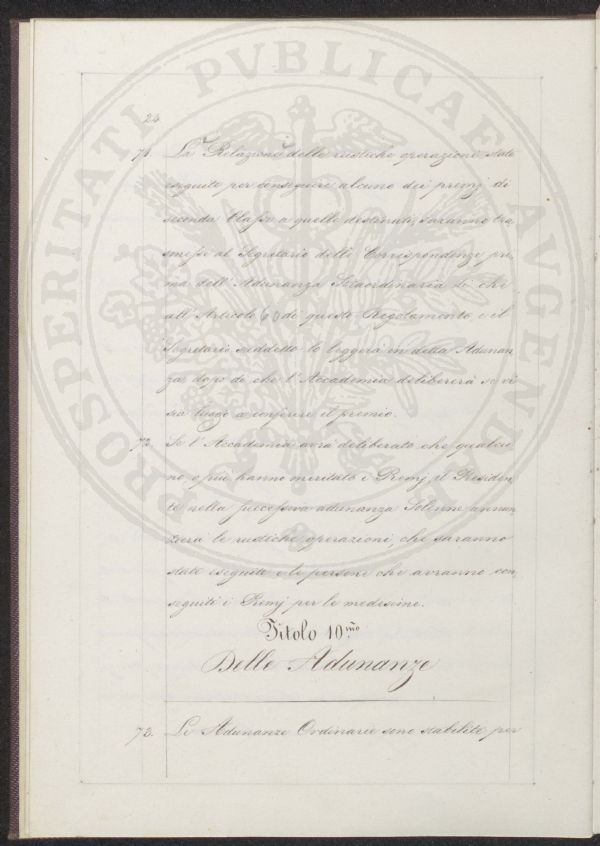 24
71. Le Relazioni delle rustiche operazioni state
eseguite per conseguire alcuno dei premj di
seconda Classe a quelle destinati, saranno tra,
smesse al Segretario delle Corrispondenze pri,
ma dell'Adunanza Straordinaria di che
all'Articolo 60 di questo Regolamento, e il
Segretario suddetto le leggerà in detta Adunan,
za dopo di che l'Accademia delibererà se vi
sia luogo a conferire il premio.
72. Se l'Accademia avrà deliberato che qualcu,
no, o più hanno meritato i Premj, il Presiden,
te nella successiva adunanza Solenne annun,
zierà le rustiche operazioni, che saranno
state eseguite e le persone che avranno con,
seguiti i Premj per le medesime.
Titolo 10.mo
Delle Adunanze
73. Le Adunanze Ordinarie sono stabilite per
PROSPERITATI PVBLICAE AVGENDAE